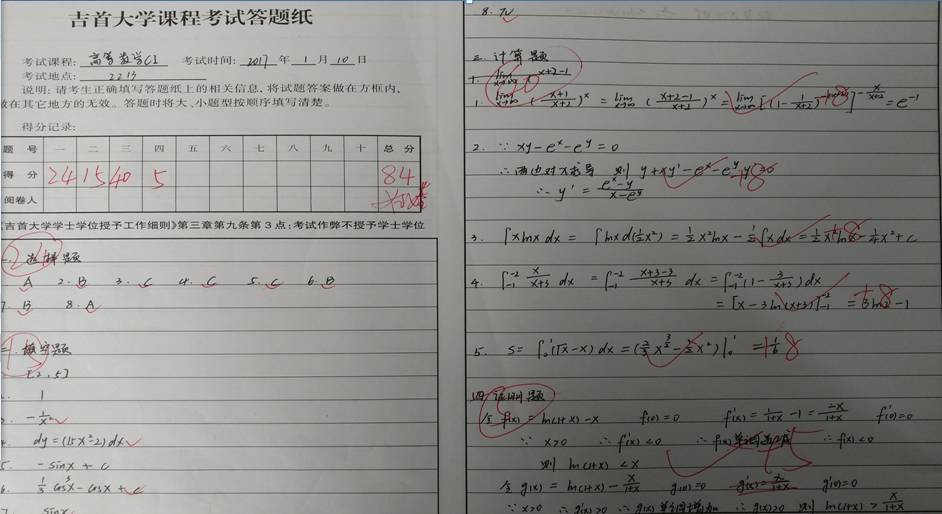 吉首大学课程考试答题纸
考试课程: 高等数学CI 考试时间: 2017 年 1 月 10 日
考试地点:
说明: 请考生正确填写答题纸上的相关信息, 将试题答案做在方框内,
做在其它地方的无效。答题时将大、小题型按顺序填写清楚。
得分记录:
题 号 一 二 三 四 五 六 七 八 九 十 总 分
得 分 24 15 40 5 84
阅卷人
《吉首大学学士学位授予工作细则》第三章第九条第3点: 考试作弊不授予学士学位
一. 选择题
A 2. B 3. C 4. C 5. C 6. B
7. B 8. A
二. 填空题
[2, 5]
1
-1/x²
dy = (15x²-2)dx
5. -sinx + c
6. 1/3 cos³x - cosx + c
7. sinx
8. π
三. 计算题
40
1. lim(x→∞) ((x+1)/(x+2))^x = lim(x→∞) ((x+2-1)/(x+2))^x = lim(x→∞) [(1 - 1/(x+2))^-(x+2)]^(-x/(x+2)) = e^-1 +8
2. ∵ xy - e^x - e^y = 0
∴ 两边对x求导 则 y + xy' - e^x - e^y y' = 0 +8
∴ y' = (e^x - y)/(x - e^y)
3. ∫xlnx dx = ∫lnx d(½x²) = ½x²lnx - ½∫x dx = ½x²lnx - ¼x² + c +8
4. ∫_-1^-2 x/(x+3) dx = ∫_-1^-2 (x+3-3)/(x+3) dx = ∫_-1^-2 (1 - 3/(x+3)) dx
= [x - 3ln(x+3)]_-1^-2 = 3ln2 - 1 +8
5. S = ∫_0^1 (√x - x) dx = (2/3 x^(3/2) - ½x²)|_0^1 = 1/6 +8
四. 证明题
令 f(x) = ln(1+x) - x f(0) = 0 f'(x) = 1/(1+x) - 1 = -x/(1+x) f'(0) = 0
∵ x>0 ∴ f'(x) <0 ∴ f(x)单调递减 ∴ f(x) <0
则 ln(1+x) < x +5
令 g(x) = ln(1+x) - x/(1+x) g(0) = 0 g'(0) = 0
∵ x>0 ∴ g'(x) >0 ∴ g(x)单调增加 ∴ g(x)>0 则 ln(1+x) > x/(1+x)